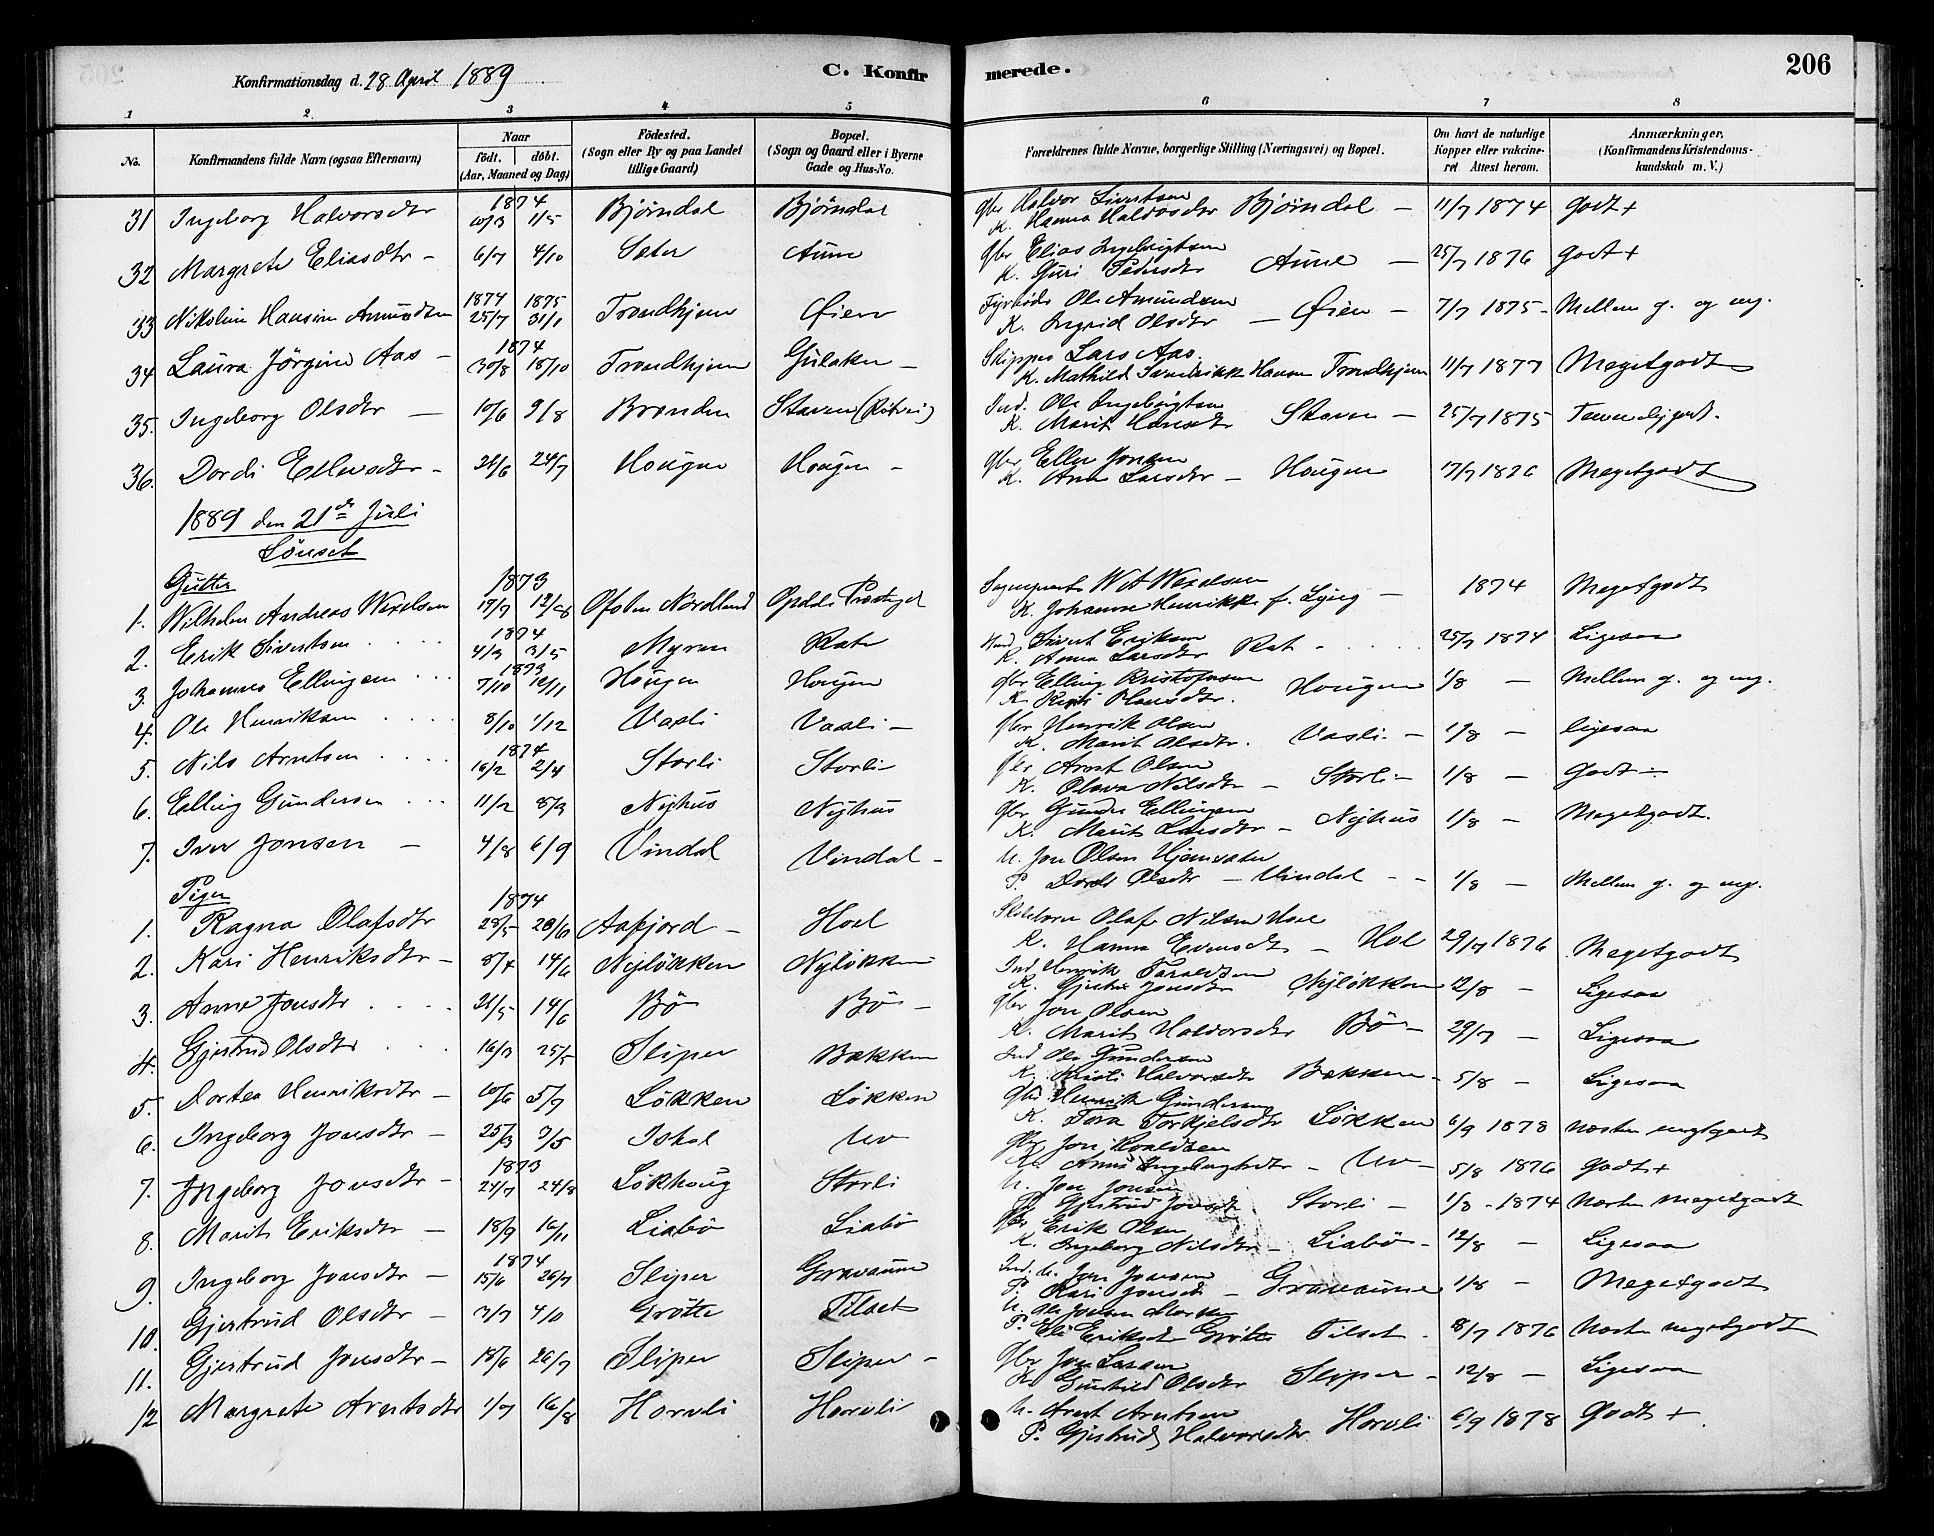 Konfirmationsdag d. 28 April 1889
C. Konfirmerede.
206
1 2. 3 4 5 6 7 8
No.
Konfirmandens fulde Navn (ogsaa Efternavn)
Naar
födt. döbt.
(Aar, Maaned og Dag)
Födested.
(Sogn eller By og paa Landet tillige Gaard)
Bopæl.
(Sogn og Gaard eller i Byerne Gade og Hus-No.
Forældrenes fulde Navne, borgerlige Stilling (Næringsvei) og Bopæl.
Om havt de naturlige Kopper eller vakcineret Attest herom.
Anmærkninger,
(Konfirmandens Kristendomskundskab m. V.)
1874
31 Ingeborg Halvorsdtr 10/3 1/5 Bjørndal Bjørndal Gbr Halvor Sivertsen K. Hanna Halvorsdtr Bjørndal — 11/7 1874 Godt +
32 Margrete Eliasdtr - 6/7 4/10 Sæter Aune Gbr Elias Ingebrigtsen K. Guri Pedersdtr Aune — 25/7 1876 Godt +
1874 1875
33 Nikoline Hansine Amundsen 25/7 31/1 Trondhjem Øien Ole Amundsen K. Ingrid Olsdtr — Øien — 7/7 1875 - Mellem g. og mg.
1874
34 Laura Jörgine Aas - 30/8 18/10 Trondhjem Gulaker - Skipper Lars Aas. K. Mathild Hansen Trondhjem 11/7 1877 Megetgodt
35. Ingeborg Olsdtr — 10/6 9/8 Brænden Staven Ind. Ole Ingebrigtsen K. Marit Hansdtr Staven — 25/7 1875 Temmelig godt.
36. Dordi Ellensdtr - 21/6 24/7 Hougen Hougen - Gbr Ellen Jonsen K. Ane Larsdtr - Hougen 17/7 1876 Megetgodt
1889 den 21de Juli
Lönset
Gutter
1873
1. Wilhelm Andreas Wexelsen 19/7 12/8 Nordland Opdals Præstegd Sogneprest W A Wexelsen K. Johanne Henrikke f. — 1874 Megetgodt
1874
2. Erik Sivertsen 4/3 3/5 Myren Rate Sivert Eriksen K. Anne Larsdtr Rat 25/7 1874 Ligesaa
1873
3. Johannes Ellingsen 7/10 16/11 Hougen Hougen Gbr Elling Kristofersen K. Olsdtr. Hougen 1/8 — Mellem g. og mg.
4. Ole Henriksen 8/10 1/12 Vasli Vasli - Gbr Henrik Olsen K. Marit Olsdtr. Vasli. - 1/8 — ligesaa
1874
5. Nils Arntsen 16/2 2/4 Storli Storli Gbr Arnt Olsen K. Nilsdtr - Storli - 1/8 — Godt -
6. Elling Gundersen 11/2 8/3 Nyhus Nyhus Gbr Gunder Ellingsen K. Marit Larsdtr - Nyhus 1/8 — Megetgodt.
7. Iver Jonsen — 4/8 6/9 Vindal Vindal - U. Jon Olsen P. Dordi Olsdtr - Vindal - 1/8 — Mellem g. og mg.
Piger
1874
1. Ragna Olafsdtr 28/5 28/6 Aafjord - Hoel Olaf Nilsen Hoel K. Hanna - Hoel 29/7 1876 Megetgodt
2. Kari Henriksdtr - 8/4 14/6 Nyløkken Nyløkken Ind. Henrik Taraldsen K. Jonsdtr Nyløkken 12/8 — Ligesaa
3. Anne Jonsdtr 21/5 14/6 Bö Bö - Gbr Jon Olsen K. Marit Halvorsdtr Bö - 29/7 — Ligesaa
4. Gjertrud Olsdtr 16/3 25/5 Sliper Bækken Ind Ole Gundersen K. Kristi Halvorsdtr Bækken - 5/8 — Ligesaa
5. Dortea Henriksdtr - 10/6 5/7 Løkken Løkken Gbr Henrik Gundersen K. Tora Torkjelsdtr Løkken 6/9 1878 Næsten megetgodt
6. Ingeborg Jonsdtr - 25/3 3/5 Ishol Uv Gbr Jon K. Anne Ingebrigtsdtr - Uv - 5/8 1876 Godt +
1873
7. Ingeborg Jonsdtr - 24/7 24/8 Løkhoug Storli U. Jon Jonsen P. Gjertrud Jonsdtr Storli - 1/8 - 1874 Næsten megetgodt
8. Marit Eriksdtr - 18/9 16/11 Liabö Liabö Gbr Erik Olsen K. Ingeborg Nilsdtr - Liabö - 12/8 — Ligesaa
1874
9. Ingeborg Jonsdtr - 15/6 26/7 Sliper Gravaune Ind. U. Jon Jonsen P. Kari Jonsdtr - Gravaune 1/8 — Megetgodt
10. Gjertrud Olsdtr - 3/7 Grötte Tilset U. Ole Jonsen P. Eli Eriksdtr Grötte Tilset - 8/7 1876 Næsten megetgodt
11. Gjertrud Jonsdtr - 18/6 26/7 Sliper Sliper - Gbr Jon Larsen K. Olsdtr Sliper - 12/8 — Ligesaa
12 Margrete Arntsdtr 1/7 16/8 Horvli Horvli U. Arnt Arntsen P. Gjertrud Halvorsdtr Horvli 6/9 1878 Godt +